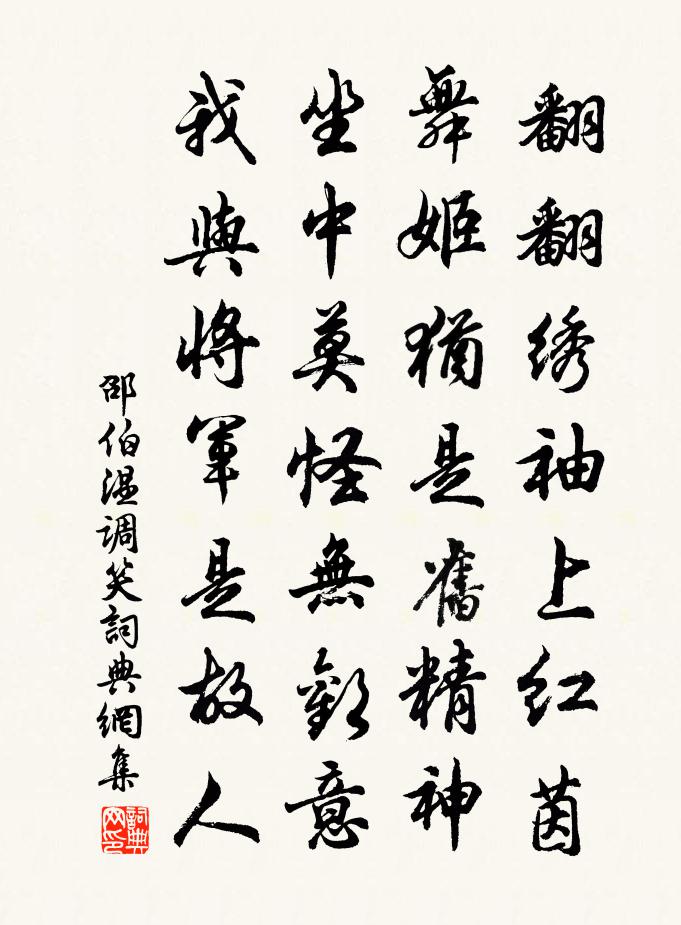 翻翻绣袖上红茵
舞姬猶是舊精神
坐中莫怪無歡意
我與將軍是故人
邵伯溫調笑詞典網集
詞典网印